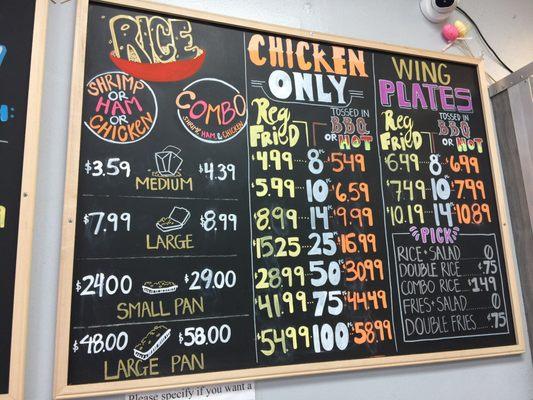 RICE
SHRIMP
OR
HAM
OR
CHICKEN
COMBO
SHRIMP, HAM & CHICKEN
$3.59 MEDIUM $4.39
$7.99 LARGE $8.99
$24.00 SMALL PAN $29.00
$48.00 LARGE PAN $58.00
CHICKEN
ONLY
Reg Fried TOSSED IN BBQ OR HOT
4.99 8PC 5.49
5.99 10PC 6.59
8.99 14PC 9.99
$15.25 25PC $16.99
$28.99 50PC $30.99
$41.99 75PC $44.49
$54.99 100PC $58.99
WING
PLATES
Reg Fried TOSSED IN BBQ OR HOT
$6.49 8PC $6.99
$7.49 10PC $7.99
$10.19 14PC $10.89
PICK
RICE + SALAD 0
DOUBLE RICE $.75
COMBO RICE $1.49
FRIES + SALAD 0
DOUBLE FRIES $.75
Please specify if you want a